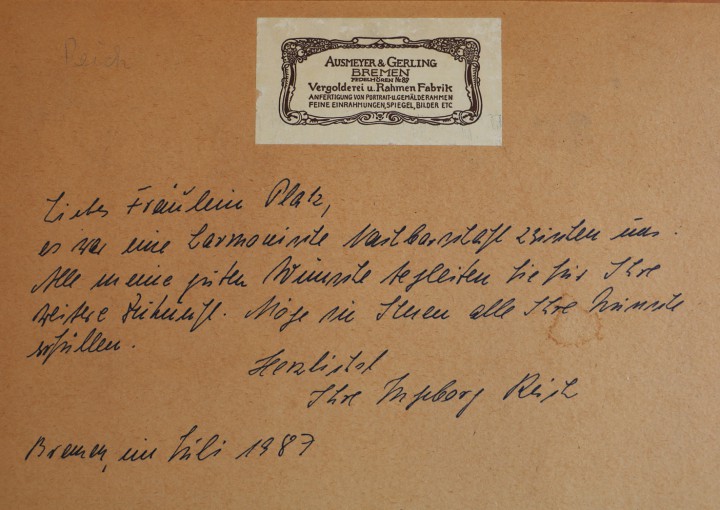 Reich
AUSMEYER & GERLING
BREMEN
PEDELHÖREN Nr 89
Vergolderei u. Rahmen Fabrik
ANFERTIGUNG VON PORTRAIT-U. GEMÄLDERAHMEN
FEINE EINRAHMUNGEN, SPIEGEL, BILDER ETC
Liebes Fräulein Platz,
es war eine harmonische Nachbarschaft zwischen uns.
Alle meine guten Wünsche begleiten Sie für Ihre
weitere Zukunft. Möge sie Ihnen alle Ihre Wünsche
erfüllen.
Herzlichst
Ihre Ingeborg Reich
Bremen, im Juli 1987